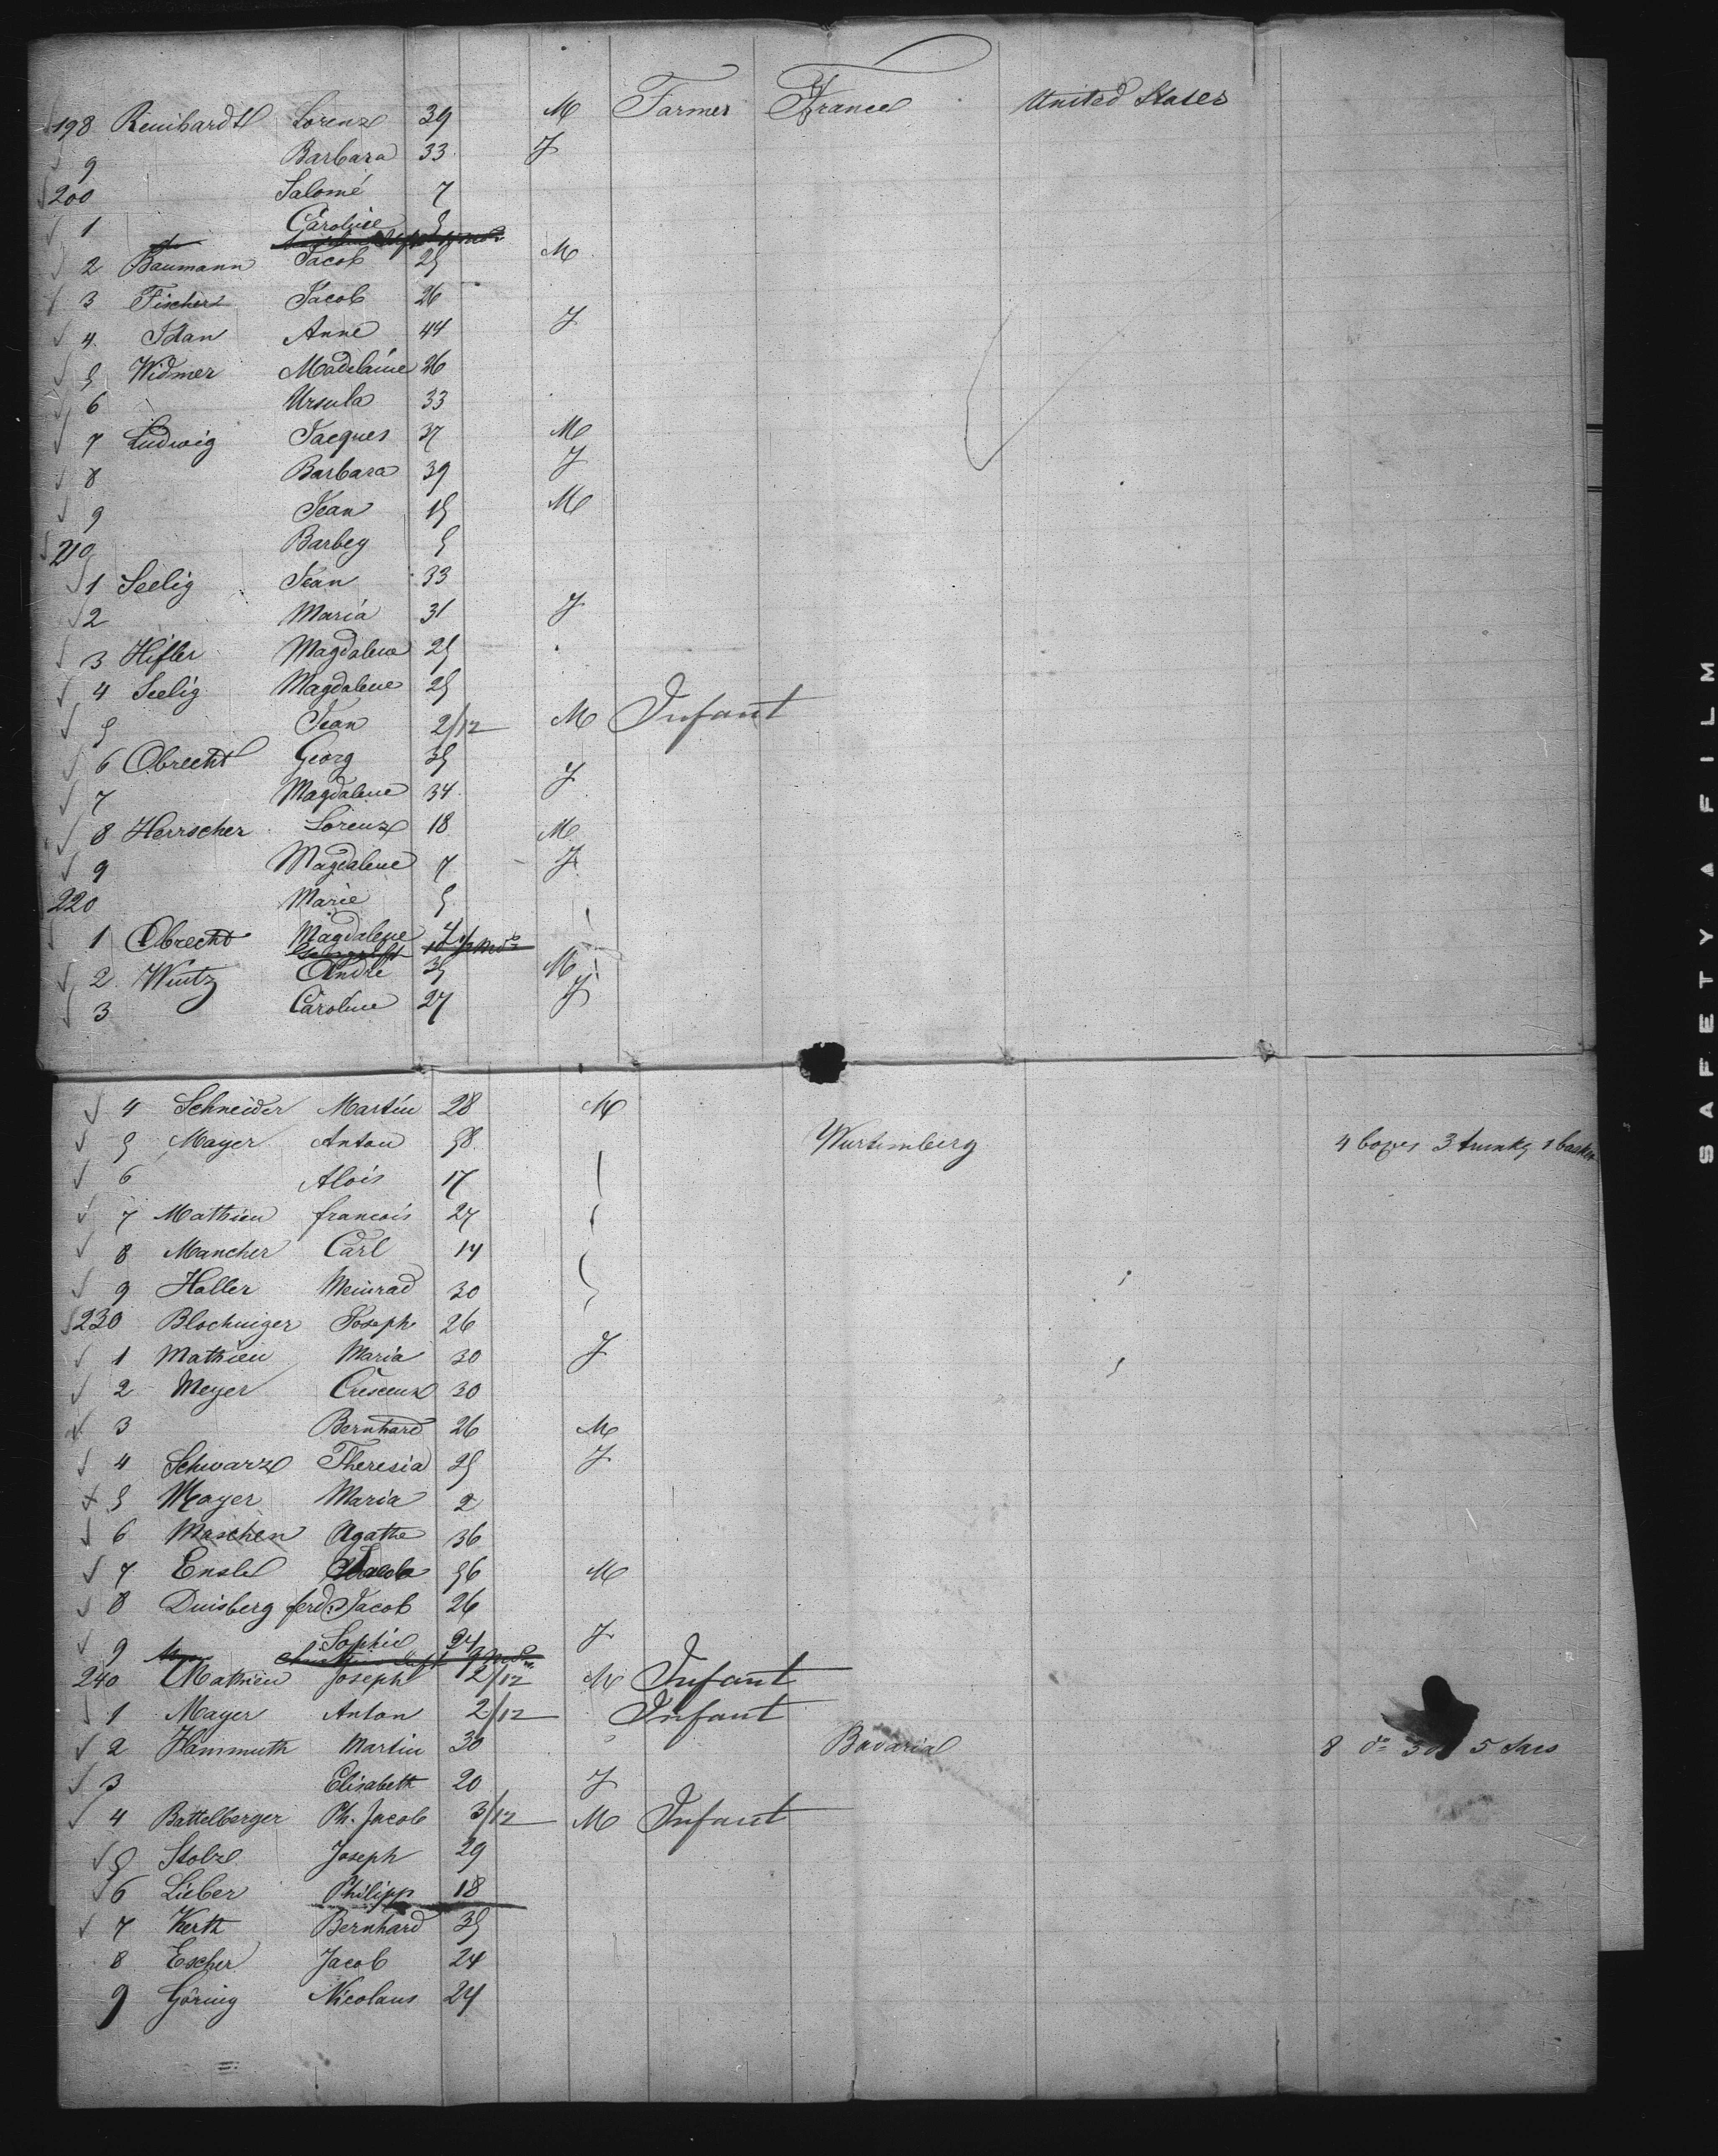 198 Reinhardt Lorenz 39 M Farmer France United States
9 Barbara 33 F
200 Salomé 7
1 Caroline 5
2 Baumann Jacob 25 M
3 Fischer Jacob 26
4 Anne 44 F
5 Widmer Madelaine 26
6 Ursula 33
7 Ludwig Jacques 37 M
8 Barbara 39 F
9 Jean 15 M
210 Barbey 5
1 Seelig Jean 33
2 Maria 31 F
3 Hifler Magdalena 25
4 Seelig Magdalene 25
5 Jean 2/12 M Infant
6 Obrecht Georg 35
7 Magdalene 34 F
8 Herrscher Lorenz 18 M
9 Magdalene 7 F
220 Marie 5
1 Obrecht Magdalene 4
2 Wintz André 35 M
3 Caroline 27 F
4 Schneider Martin 28 M
5 Mayer Anton 58 Wurtemberg 4 boxes 3 trunks 1 basket
6 Alois 17
7 Mathieu francois 27
8 Mancher Carl 14
9 Haller Meinrad 30
230 Blochinger Joseph 26
1 Mathieu Maria 30 F
2 Meyer Crescenz 30
3 Bernhard 26 M
4 Schwarz Theresia 25 F
5 Mayer Maria 2
6 Maschen Agathe 36
7 Ensle Jacob 56 M
8 Duisberg ferd. Jacob 26
9 Sophie 24 F
240 Mathieu Joseph 2/12 M Infant
1 Mayer Anton 2/12 Infant
2 Hammuth Martin 30 Bavaria 8 do 3 do 5 Sacs
3 Elisabeth 20 F
4 Battelberger Ph. Jacob 3/12 M Infant
5 Stolze Joseph 29
6 Lieber Philipp 18
7 Kerth Bernhard 35
8 Escher Jacob 24
9 Göring Nicolaus 24
SAFETY A FILM